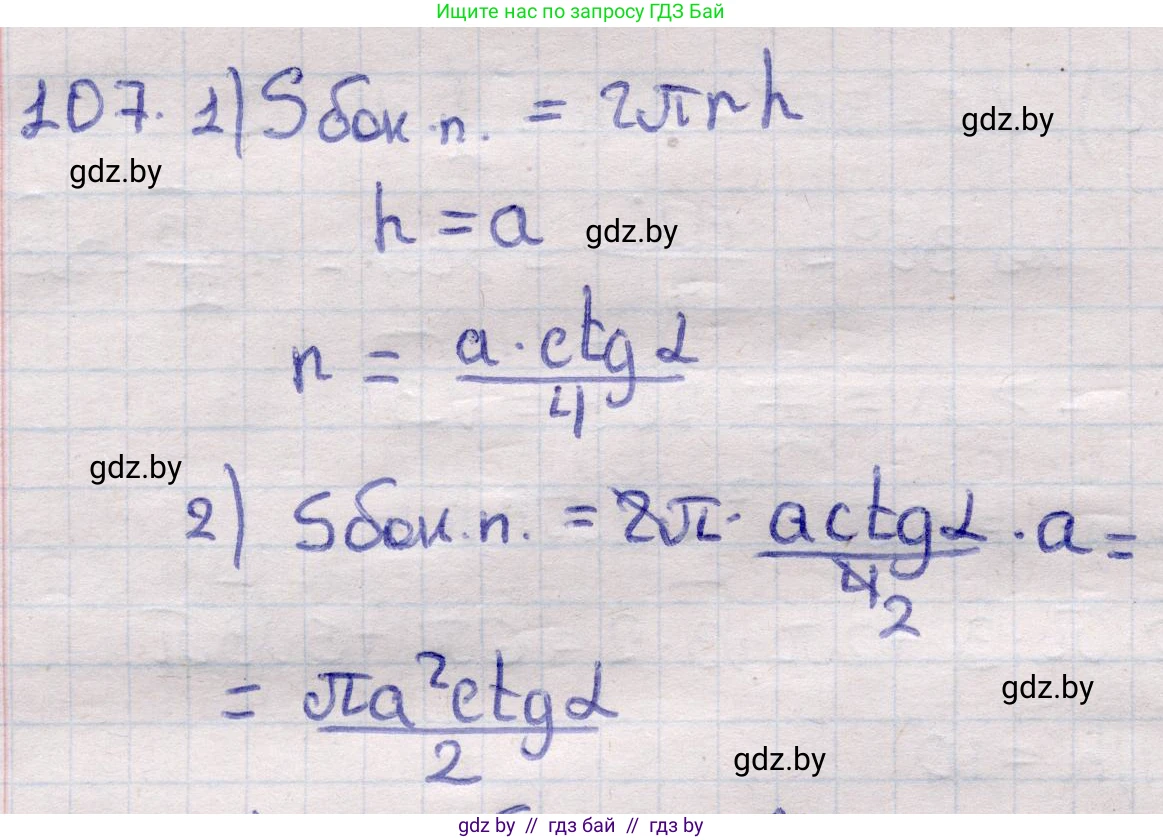 Ищите нас по запросу ГДЗ Бай
107. 1) Sбок.п. = 2πrh
gdz.by
gdz.by
h = a
gdz.by
r = a · ctg α / 4
gdz.by
2) Sбок.п. = 2π · a ctg α / 4 2 · a =
= πa² ctg α / 2
gdz.by
gdz.by
gdz.by // гдз бай // гдз by